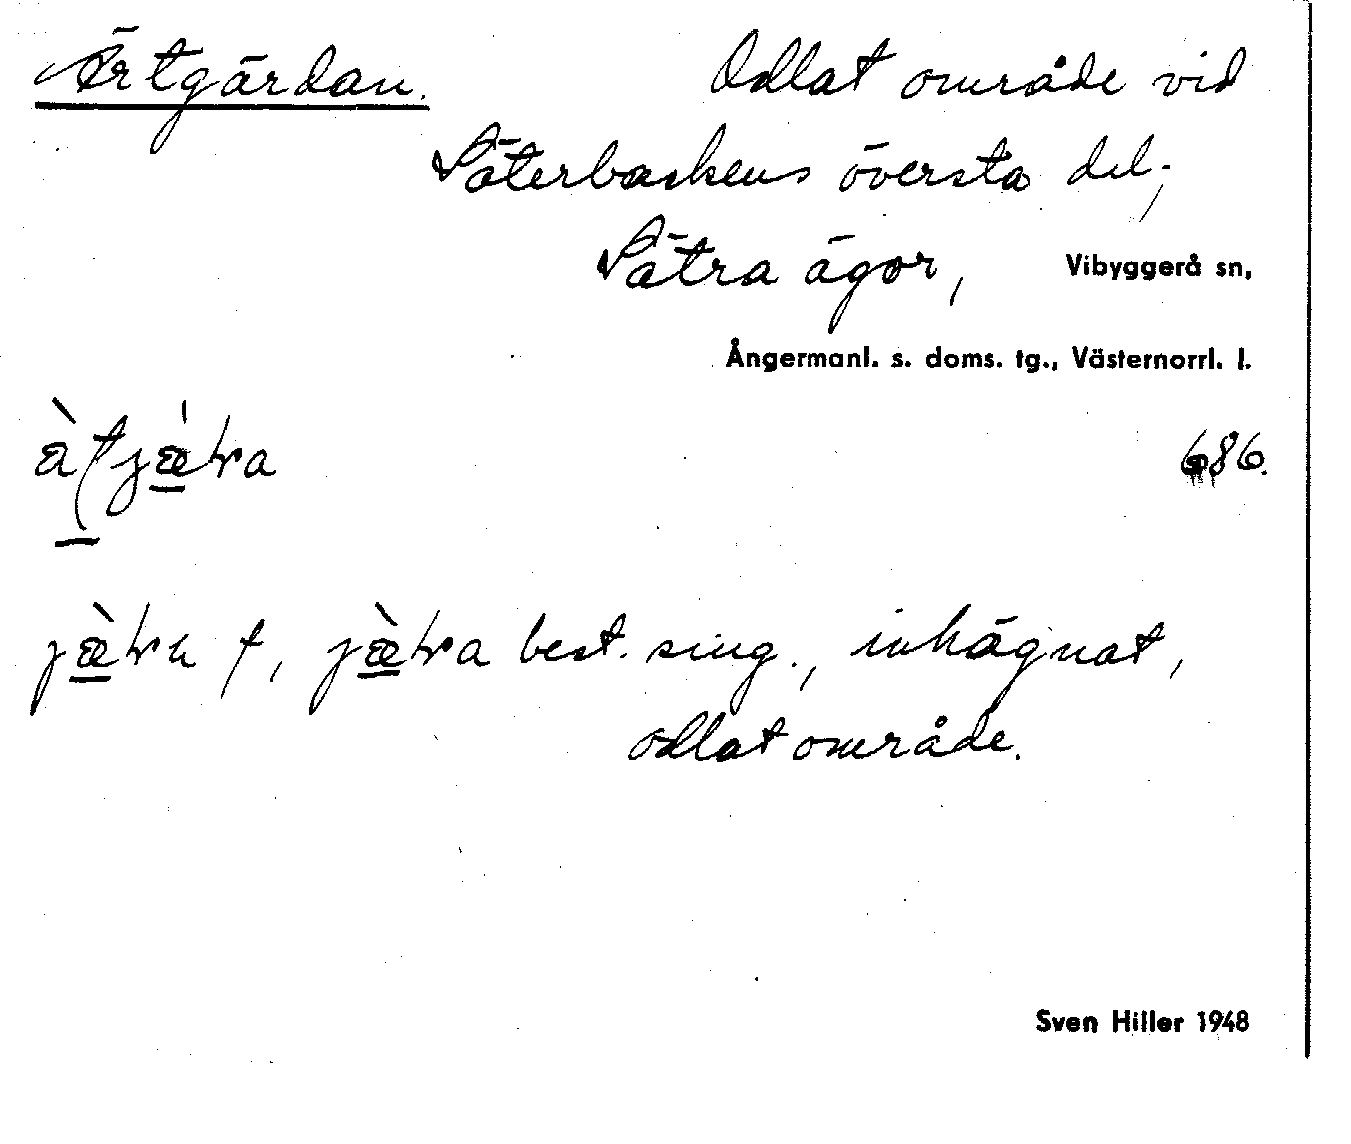 Ärtgärdan. Odlat område vid
Säterbackens översta del;
Sätra ägor, Vibyggerå sn,
Ångermanl. s. doms. tg., Västernorrl. l.
686.
f, best. sing., inhägnat,
odlat område.
Sven Hiller 1948